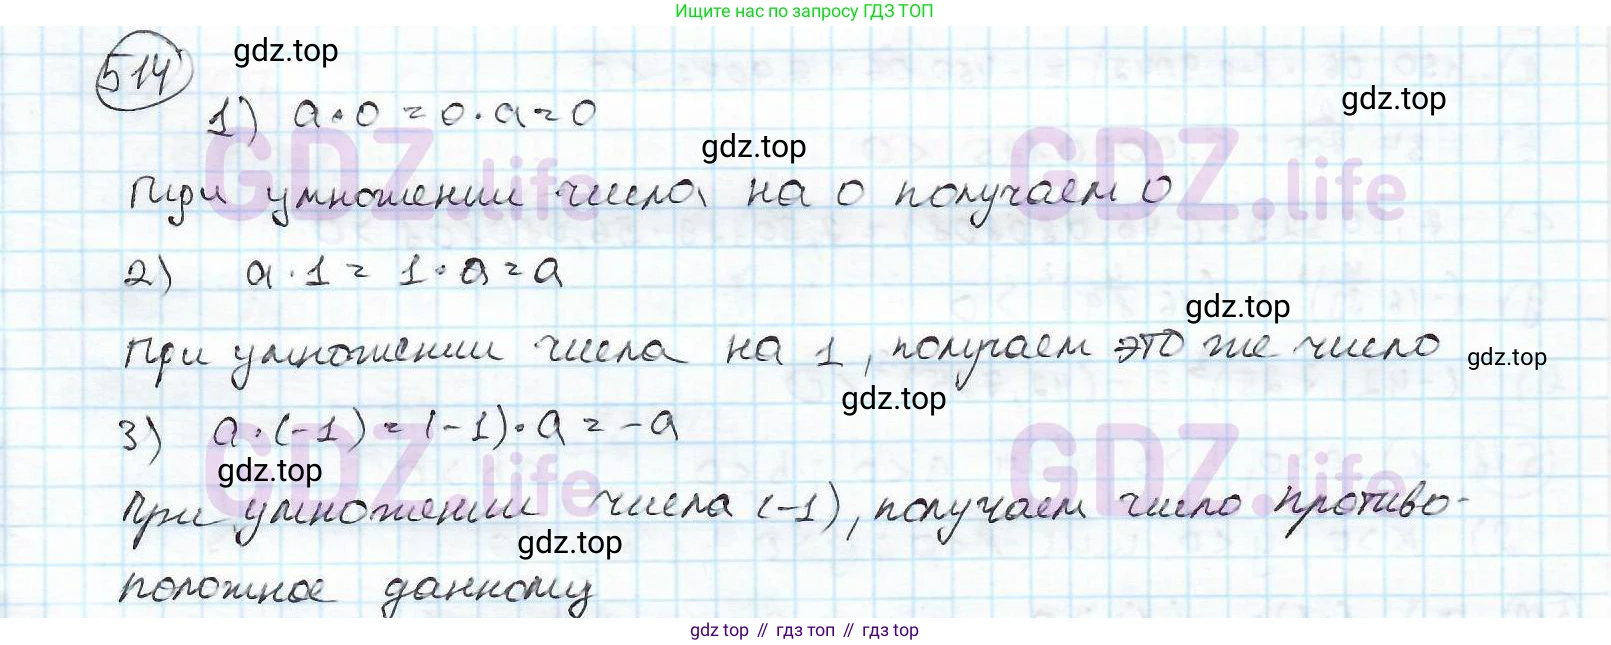 Ищите нас по запросу ГДЗ ТОП
514 gdz.top
1) a·0 = 0·a = 0 gdz.top
gdz.top
GDZ.life GDZ.life
При умножении числа на 0 получаем 0
2) a·1 = 1·a = a
gdz.top
При умножении числа на 1, получаем это же число gdz.top
gdz.top
3) a·(-1) = (-1)·a = -a
gdz.top
GDZ.life GDZ.life
При умножении числа (-1), получаем число противо-
gdz.top
положное данному
gdz top // гдз топ // гдз top